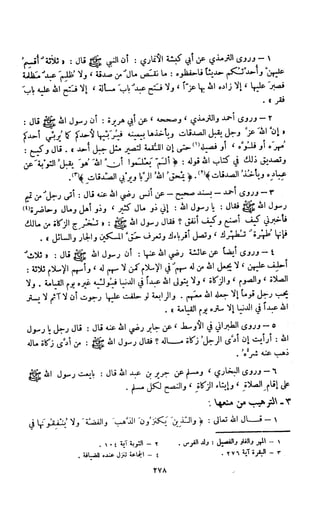 ١ – وروى الترمذي عن أبي كبشة الأنماري : أن النبي ﷺ قال : « ثلاثة أقسم
عليهن وأحدثكم حديثاً فاحفظوه : ما نقص مال من صدقة ، ولا ظلم عبد مظلمة
فصبر عليها ، إلا زاده الله بها عزاً ، ولا فتح عبد باب مسألة ، إلا فتح الله عليه باب
فقر » .
٢ – وروى أحمد والترمذي ، وصححه ، عن أبي هريرة : أن رسول الله ﷺ قال :
« إن الله عز وجل يقبل الصدقات ويأخذها بيمينه فيربيها لأحدكم كما يربي أحدكم
مهره أو فلوه ، أو فصيله (١) حتى إن اللقمة لتصير مثل جبل أحد » . قال وكيع :
وتصديق ذلك في كتاب الله قوله : ﴿ ألم يعلموا أن الله هو يقبل التوبة عن
عباده ويأخذ الصدقات ﴾ (٢) . ﴿ يمحق الله الربا ويربي الصدقات ﴾ (٣) .
٣ – وروى أحمد – بسند صحيح – عن أنس رضي الله عنه قال : أتى رجل من تميم
رسول الله ﷺ فقال : يا رسول الله : إني ذو مال كثير ، وذو أهل ومال وحاضرة (٤)
فأخبرني كيف أصنع وكيف أنفق ؟ فقال رسول الله ﷺ : « تخرج الزكاة من مالك
فإنها طهرة تطهرك ، وتصل أقرباءك وتعرف حق المسكين والجار والسائل » .
٤ – وروى أيضاً عن عائشة رضي الله عنها : أن رسول الله ﷺ قال : « ثلاث
أحلف عليهن ، لا يجعل الله من له سهم في الإسلام كمن لا سهم له ، وأسهم الإسلام ثلاثة :
الصلاة ، والصوم ، والزكاة ، ولا يتولى الله عبداً في الدنيا فيوليه غيره يوم القيامة . ولا
يحب رجل قوماً إلا جعله الله معهم . والرابعة لو حلفت عليها رجوت أن لا آثم لا يستر
الله عبداً في الدنيا إلا ستره يوم القيامة » .
٥ – وروى الطبراني في الأوسط ، عن جابر رضي الله عنه قال : قال رجل يا رسول
الله : أرأيت إن أدى الرجل زكاة ماله ؟ فقال رسول الله ﷺ : من أدى زكاة ماله
ذهب عنه شره » .
٦ – وروى البخاري ، ومسلم عن جرير بن عبد الله قال : بايعت رسول الله ﷺ
على إقام الصلاة ، وإيتاء الزكاة ، والنصح لكل مسلم .
٣ـ الترهيب من منعها :
١ – قـــال الله تعالى : ﴿ والذين يكنزون الذهب والفضة ولا ينفقونها في
١ – المهر والفلو والفصيل : ولد الفرس .
٢ – التوبة آية ١٠٤ .
٣ – البقرة آية ٢٧٦ .
٤ – الجماعة تنزل عنده للضيافة .
٢٧٨